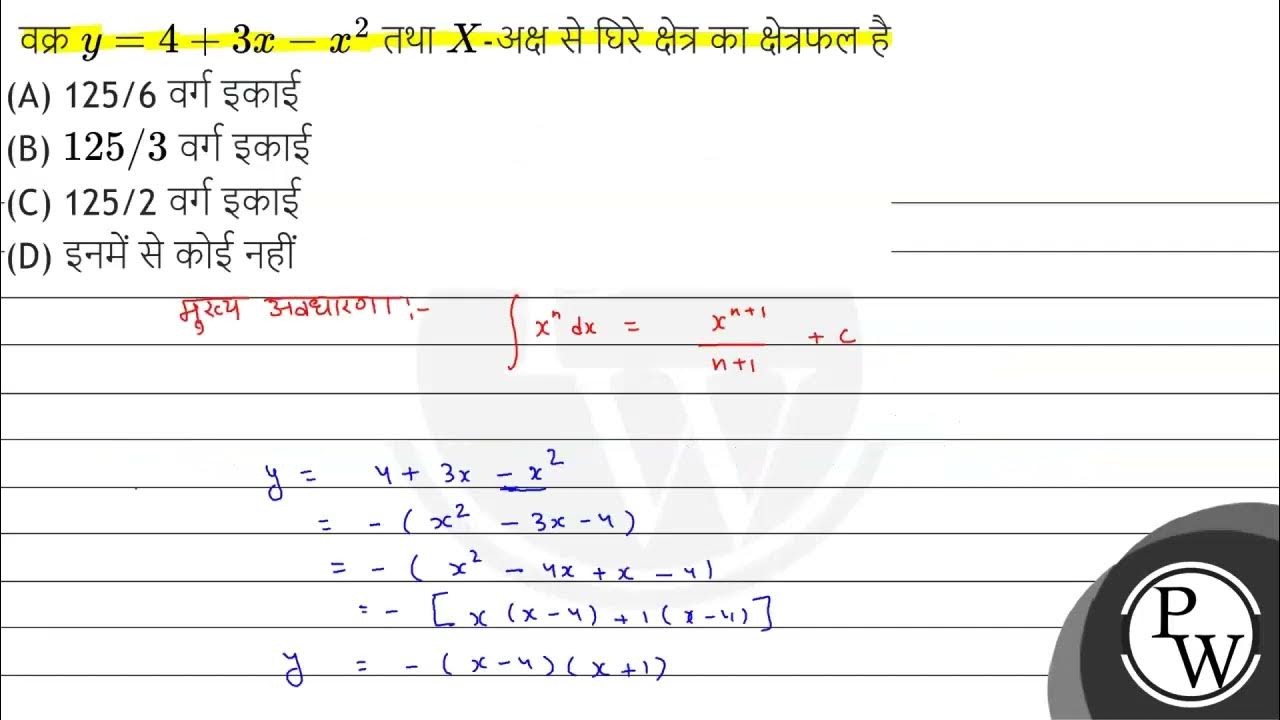 वक्र y = 4 + 3x − x² तथा X-अक्ष से घिरे क्षेत्र का क्षेत्रफल है
(A) 125/6 वर्ग इकाई
(B) 125/3 वर्ग इकाई
(C) 125/2 वर्ग इकाई
(D) इनमें से कोई नहीं
मुख्य अवधारणा :- ∫ xⁿ dx = xⁿ⁺¹/n+1 + c
y = 4 + 3x − x²
= − ( x² − 3x − 4 )
= − ( x² − 4x + x − 4 )
= − [ x (x − 4) + 1 ( x − 4) ]
y = − ( x − 4 ) ( x + 1 )
PW